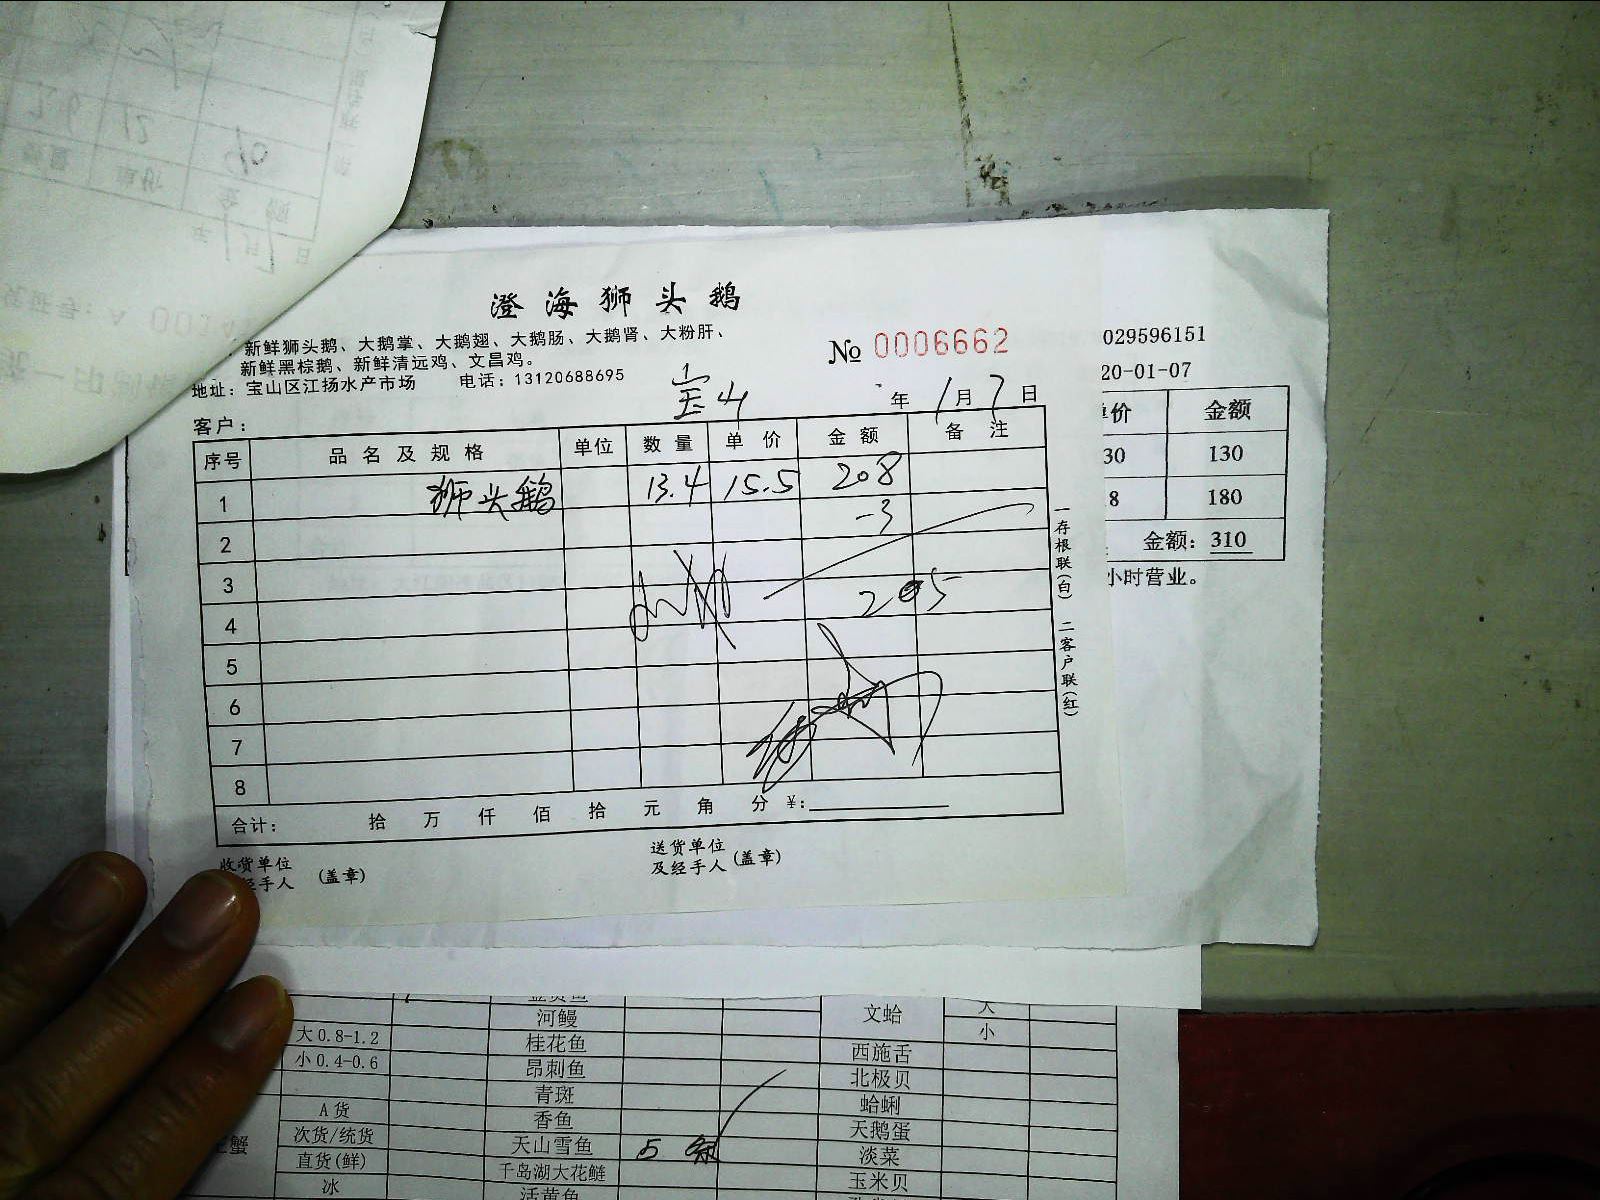 澄海狮头鹅
新鲜狮头鹅、大鹅掌、大鹅翅、大鹅肠、大鹅肾、大粉肝、
新鲜黑棕鹅、新鲜清远鸡、文昌鸡。
地址：宝山区江扬水产市场 电话：13120688695
№ 0006662
客户： 宝山 年 1月7日
序号 品名及规格 单位 数量 单价 金额 备注
1 狮头鹅 13.4 15.5 208
2 -3
3
4 205
5
6
7
8
合计： 拾 万 仟 佰 拾 元 角 分 ¥:
收货单位
经手人 (盖章)
送货单位
及经手人 (盖章)
一存根联(白) 二客户联(红)
029596151
20-01-07
价 金额
30 130
8 180
金额：310
小时营业。
河鳗 文蛤 大
小
大0.8-1.2 桂花鱼 西施舌
小0.4-0.6 昂刺鱼 北极贝
青斑 蛤蜊
A货 香鱼 天鹅蛋
蟹 次货/统货 天山雪鱼 5 淡菜
直货(鲜) 千岛湖大花鲢 玉米贝
冰 活黄鱼